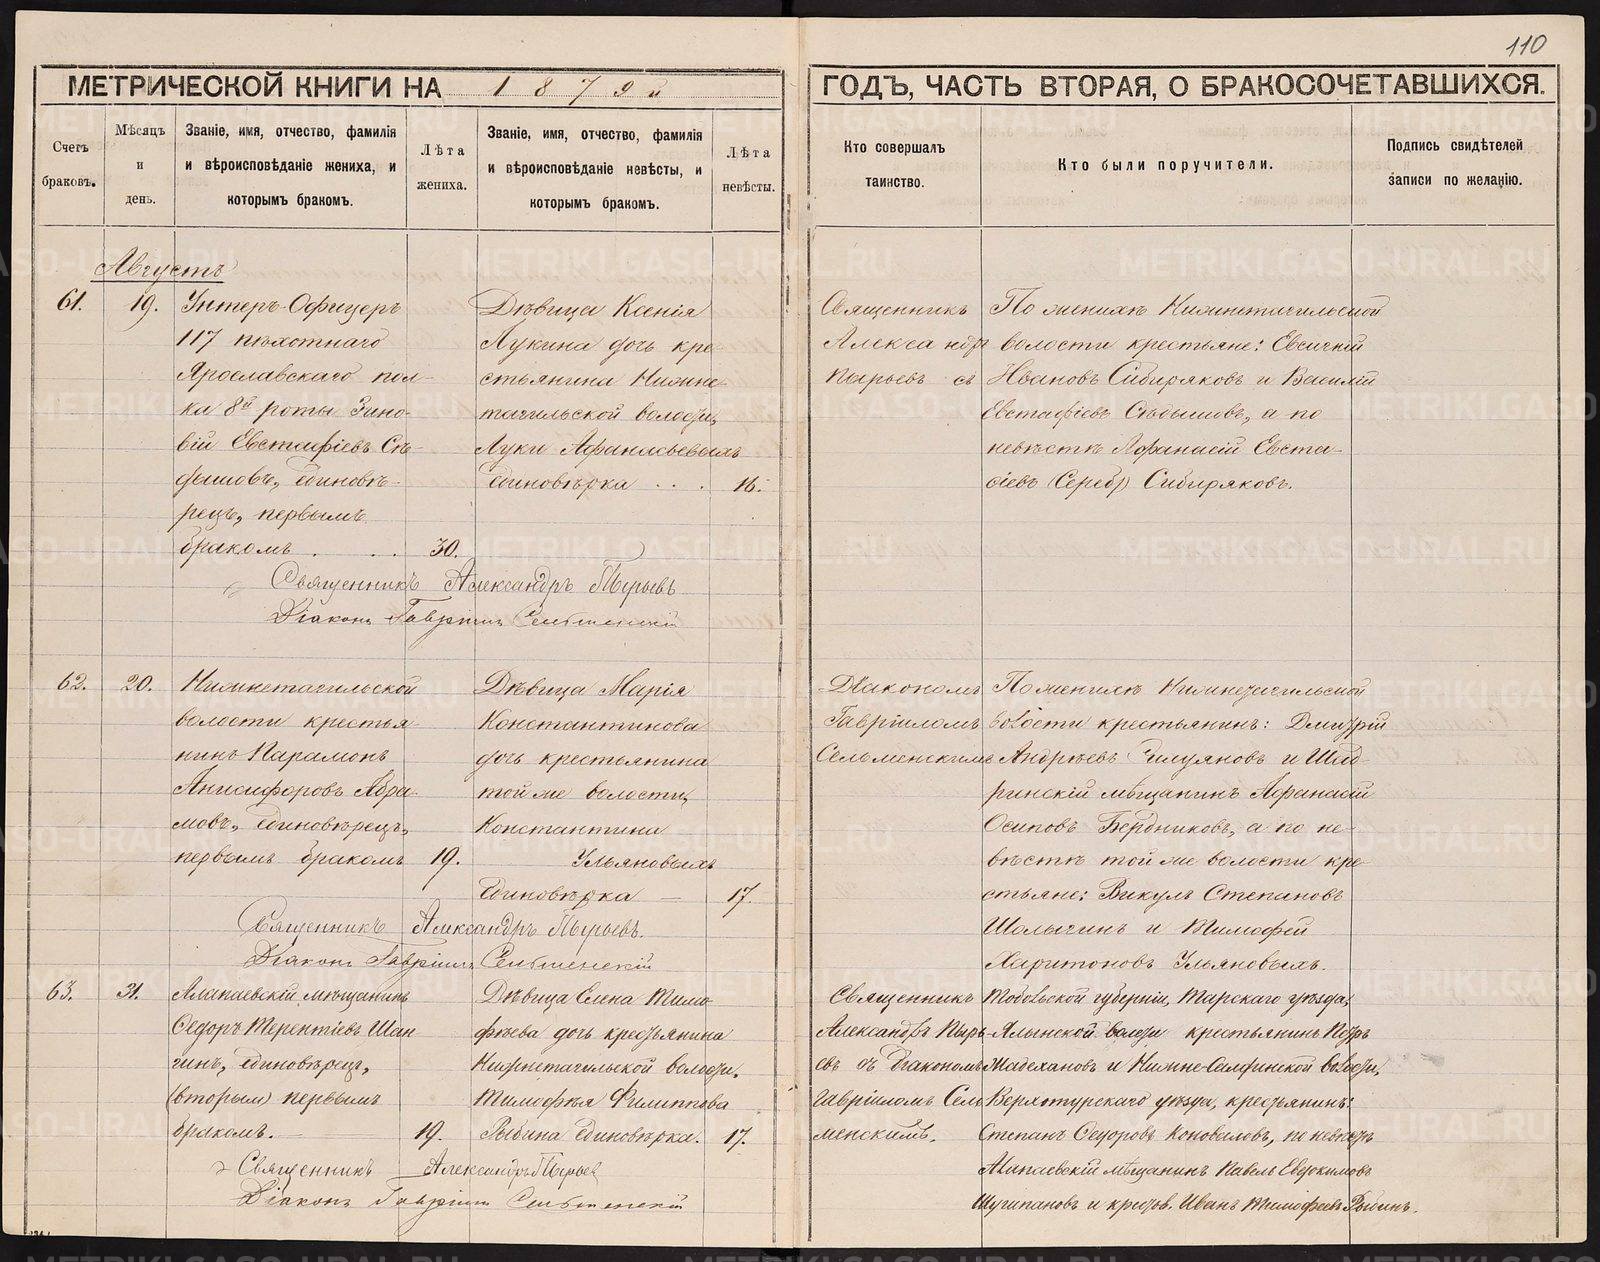 110
МЕТРИЧЕСКОЙ КНИГИ НА 1879й
ГОДЪ, ЧАСТЬ ВТОРАЯ, О БРАКОСОЧЕТАВШИХСЯ.
Счетъ
браковъ.
Мѣсяцъ
и
день.
Званіе, имя, отчество, фамилія
и вѣроисповѣданіе жениха, и
которымъ бракомъ.
Лѣта
жениха.
Званіе, имя, отчество, фамилія
и вѣроисповѣданіе невѣсты, и
которымъ бракомъ.
Лѣта
невѣсты.
Кто совершалъ
таинство.
Кто были поручители.
Подпись свидѣтелей
записи по желанію.
Августъ
61.
19.
Унтеръ-Офицеръ
117 пѣхотнаго
Ярославскаго пол-
ка 8й роты Зино-
вій Евстафіевъ Сѣ-
дышовъ, единовѣ-
рецъ, первымъ
бракомъ . . .
30.
Дѣвица Ксенія
Лукина дочь кре-
стьянина Нижне-
тагильской волости,
Луки Афанасьевыхъ
единовѣрка . . .
16.
Священникъ
Александръ
Пырьевъ съ
По женихѣ Нижнетагильской
волости крестьяне: Евсигній
Ивановъ Сибиряковъ и Василій
Евстафіевъ Сѣдышовъ, а по
невѣстѣ Афанасій Евста-
фіевъ (Сереб) Сибиряковъ.
Священникъ Александръ Пырьевъ
Діаконъ Гавріилъ Сельменскій
62.
20.
Нижнетагильской
волости крестья-
нинъ Парамонъ
Анисифоровъ Абра-
мовъ, единовѣрецъ,
первымъ бракомъ
19.
Дѣвица Марія
Константинова
дочь крестьянина
той же волости,
Константина
Ульяновыхъ
единовѣрка —
17.
Діакономъ
Гавріиломъ
Сельменскимъ
По женихѣ Нижнетагильской
волости крестьянинъ: Дмитрій
Андреевъ и Шад-
ринскій мѣщанинъ Афанасій
Осиповъ Бердниковъ, а по не-
вѣстѣ той же волости кре-
стьяне: Викулъ Степановъ
Шолыгинъ и Тимофей
Харитоновъ Ульяновыхъ.
Священникъ Александръ Пырьевъ.
Діаконъ Гавріилъ Сельменскій
63.
31.
Алапаевскій мѣщанинъ
Ѳедоръ Терентіевъ Шан-
гинъ, единовѣрецъ,
(вторым) первымъ
бракомъ. —
19.
Дѣвица Елена Тимо-
фѣева дочь крестьянина
Нижнетагильской волости,
Тимофѣя Филиппова
Рыбина единовѣрка.
17.
Священникъ
Александръ Пырь-
евъ съ діакономъ
Гавріиломъ Сель-
менскимъ.
Тобольской губерніи, Тарскаго уѣзда,
Ялынской волости крестьянинъ Петръ
и Нижне-Салдинской волости,
Верхотурскаго уѣзда, крестьянинъ:
Степанъ Ѳедоровъ Коноваловъ, по невѣстѣ
Алапаевскій мѣщанинъ Павелъ Евдокимовъ
и крестьян. Иванъ Тимофеевъ Рыбинъ.
Священникъ Александръ Пырьев
Діаконъ Гавріилъ Сельменскій
METRIKI.GASO-URAL.RU